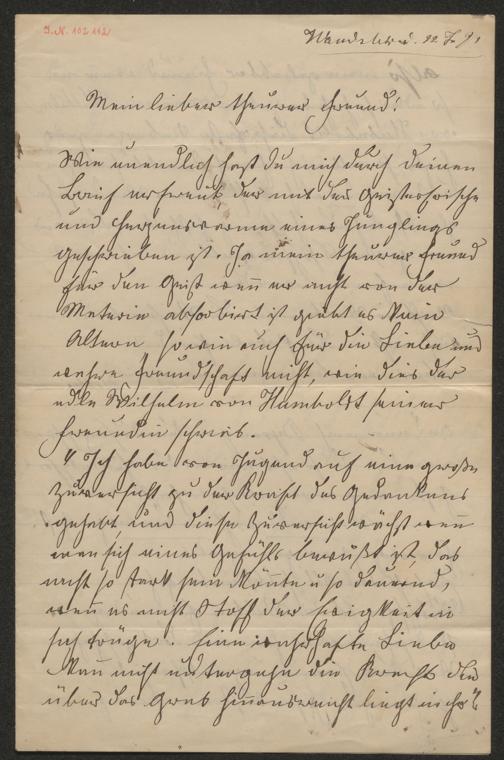 I.N. 102112
Wandsbeck. 22. 7. 91
Mein lieber theurer Freund!
Wie unendlich hast du mich durch deinen
Brief erfreut, der mit der Geistesfrische
und Herzenswärme eines Jünglings
geschrieben ist. Ja mein theurer Freund
für den Geist wenn er nicht von der
Materie absorbiert ist giebt es kein
Altern so wie auch für die Liebe und
wahre Freundschaft nicht, wie dies der
edle Wilhelm von Humboldt seiner
Freundin schrieb.
"Ich habe von Jugend auf eine große
Zuversicht zu der Kraft des Gedankens
gehabt und diese Zuversicht wächst wenn
man sich eines Gefühls bewußt ist, das
nicht so stark sein könnte u so dauernd,
wenn es nicht Stoff der Ewigkeit in
sich trüge. Eine wahrhafte Liebe
kann nicht untergehn die Kraft die
über das Grab hinausreicht liegt in ihr"